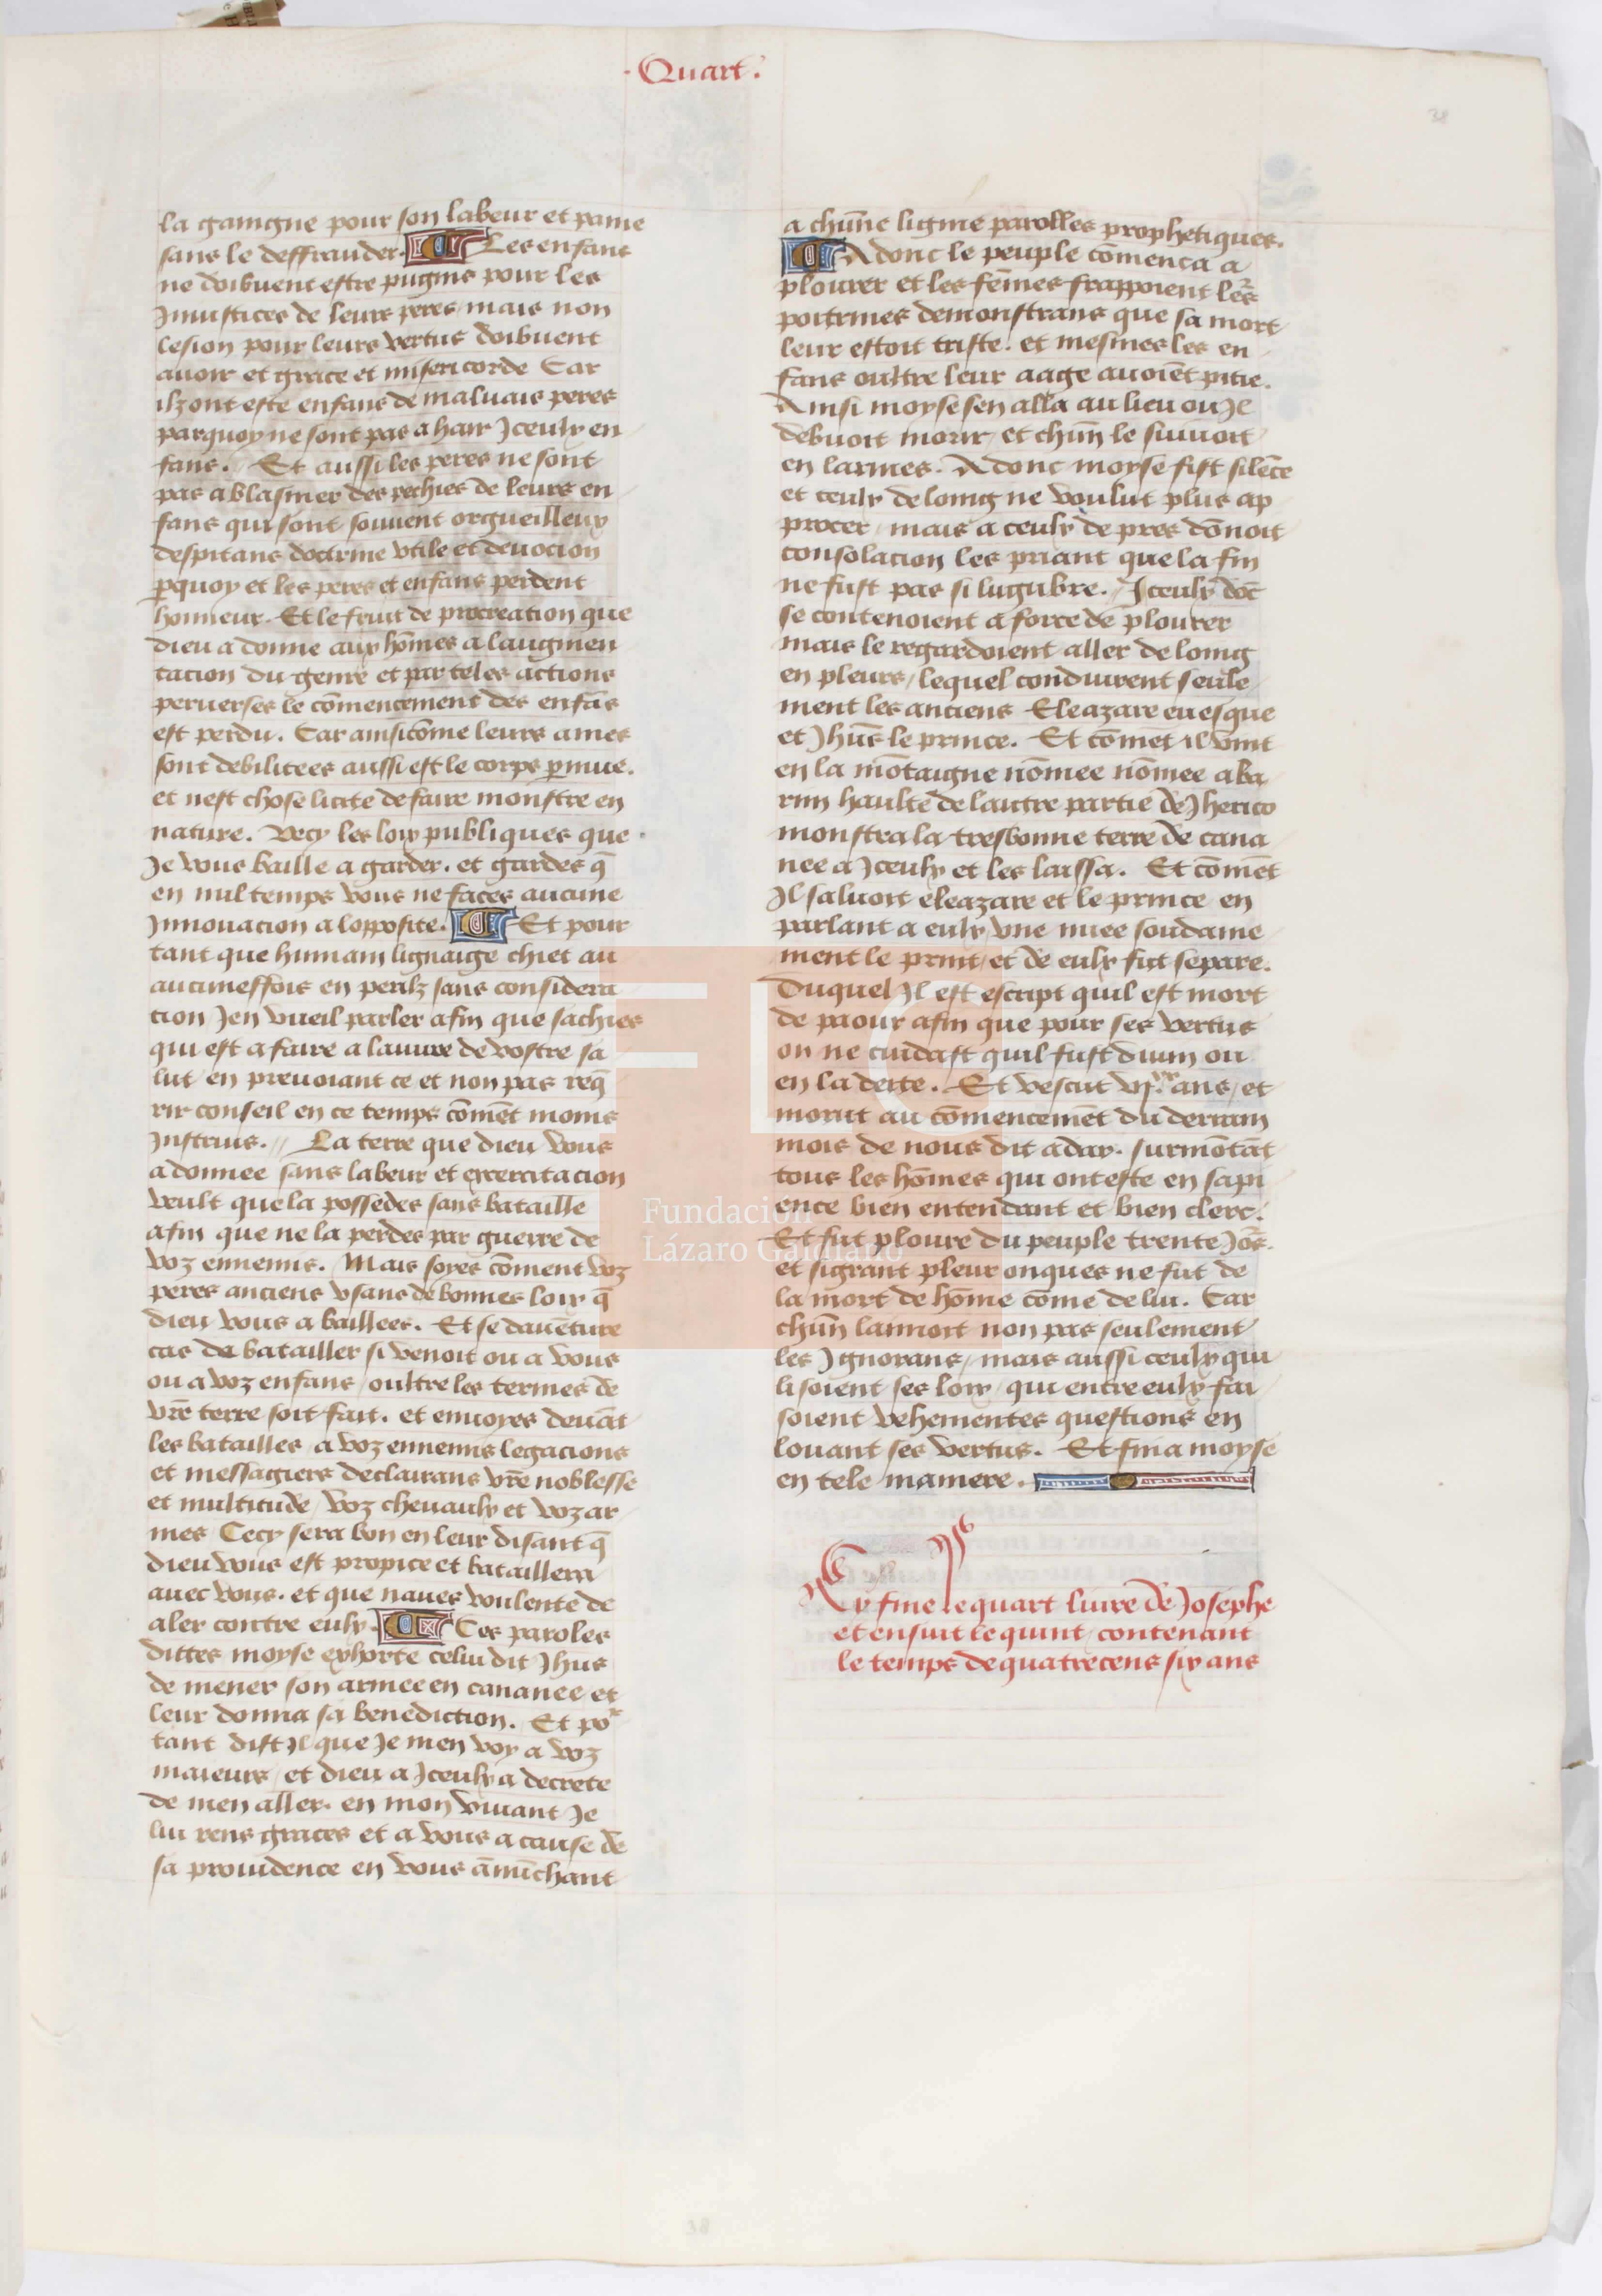 ·Quart.
38
la gaingne pour son labeur et paine
sans le deffrauder. Les enfans
ne doibuent estre pugnis pour les
Iniustices de leurs peres / mais non
lesion pour leurs vertus doibuent
auoir et grace et misericorde Car
ilz ont este enfans de maluais peres
parquoy ne sont pas a hair Iceulx en
fans. Et aussi les peres ne sont
pas a blasmer des pechies de leurs en
fans qui sont souuent orgueilleux
despitans doctrine vtile et deuocion
pquoy et les peres et enfans perdent
honneur. Et le fruit de procreation que
dieu a donne aux hōmes a laugmen
tacion du genre et par teles actions
peruerses le cōmencement des enfās
est perdu. Car ainsi cōme leurs ames
sont debilitees aussi est le corps pmue.
et nest chose licite de faire monstre en
nature. Vecy les loix publiques que
Je vous baille a garder. et gardes q̄
en nul temps vous ne faces aucune
Innouacion a lopposite. Et pour
tant que humain lignaige chiet au
aucuneffois en perilz sans considera
cion Jen vueil parler afin que sachies
qui est a faire a lauure de vostre sa
lut en preuoiant ce et non pas req̄
rir conseil en ce temps cōmēt moins
Instruis. // La terre que dieu vous
a donnee sans labeur et excercitacion
veult que la possedes sans bataille
afin que ne la perdes par guerre de
voz ennemis. Mais soyes cōment voz
peres anciens vsans de bonnes loix q̄
dieu vous a baillees. Et se dauēture
cas de batailler si venoit ou a vous
ou a voz enfans / oultre les termes de
vr̄e terre soit fait. et enuoyes deuāt
les batailles a voz ennemis legacions
et messagiers declairans vr̄e noblesse
et multitude / voz cheuaulx et voz ar
mes Cecy sera bon en leur disant q̄
dieu vous est propice et bataillera
auec vous. et que naues voulente de
aler contre eulx. Ces paroles
dittes moyse exhorte celui dit Jhus
de mener son armee en cananee / et
leur donna sa benediction. Et por
tant dist Il que Je men voy a voz
maieurs / et dieu a Iceulx a decrete
de men aller. en mon viuant Je
lui rens graces et a vous a cause de
sa prouidence en vous ānūchant
a chūne lignie parolles prophetiques.
Adonc le peuple cōmenca a
plourer et les fēmes frappoient lers
poitrines demonstrans que sa mort
leur estoit triste. et mesmes les en
fans oultre leur aage auoiēt pitie.
Ainsi moyse sen alla au lieu ou Il
debuoit morir / et chūn le suiuoit
en larmes. Adonc moyse fist silēce
et ceulx de loing ne voulut plus ap
procer / mais a ceulx de pres dōnoit
consolacion les priant que la fin
ne fust pas si lugubre. // Iceulx dōc
se contenoient a force de plourer
mais le regardoient aller de loing
en pleurs / lequel conduirent seule
ment les anciens Eleazare euesque
et Jhūs le prince. Et cōmēt il vint
en la mōtaigne nōmee nōmee aba
rim haulte de lautre partie de Jherico
monstra la tresbonne terre de cana
nee a Iceulx et les laissa. Et cōmēt
Il saluoit eleazare et le prince en
parlant a eulx vne nuee soudaine
ment le print / et de eulx fut separe.
Duquel Il est escript quil est mort
de paour afin que pour ses vertus
on ne cuidast quil fust diuin ou
en la deite. Et vescut vj.xx ans / et
morut au cōmencemēt du derrain
mois de nous dit adar. surmōtāt
tous les hōmes qui ont este en sapi
ence bien entendant et bien clerc.
Et fut ploure du peuple trente Jors.
et si grant pleur onques ne fut de
la mort de hōme cōme de lui. Car
chūn lamoit non pas seulement
les Ignorans / mais aussi ceulx qui
lisoient ses loix / qui entre eulx fai
soient vehementes questions en
louant ses vertus. Et fina moyse
en tele maniere.
Cy fine le quart liure de Josephe
et ensuit le quint / contenant
le temps de quatre cens six ans
FLG
Fundación
Lázaro Galdiano
38